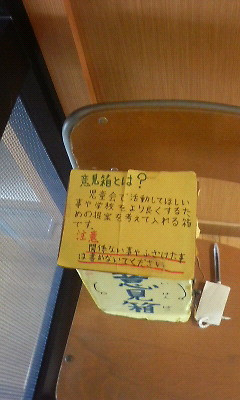 意見箱とは?
児童会で活動してほしい
事や学校をより良くするた
めの提案を考えて入れる箱
です。
注意
関係ない事やふざけた事
は書かないでください。
意見箱